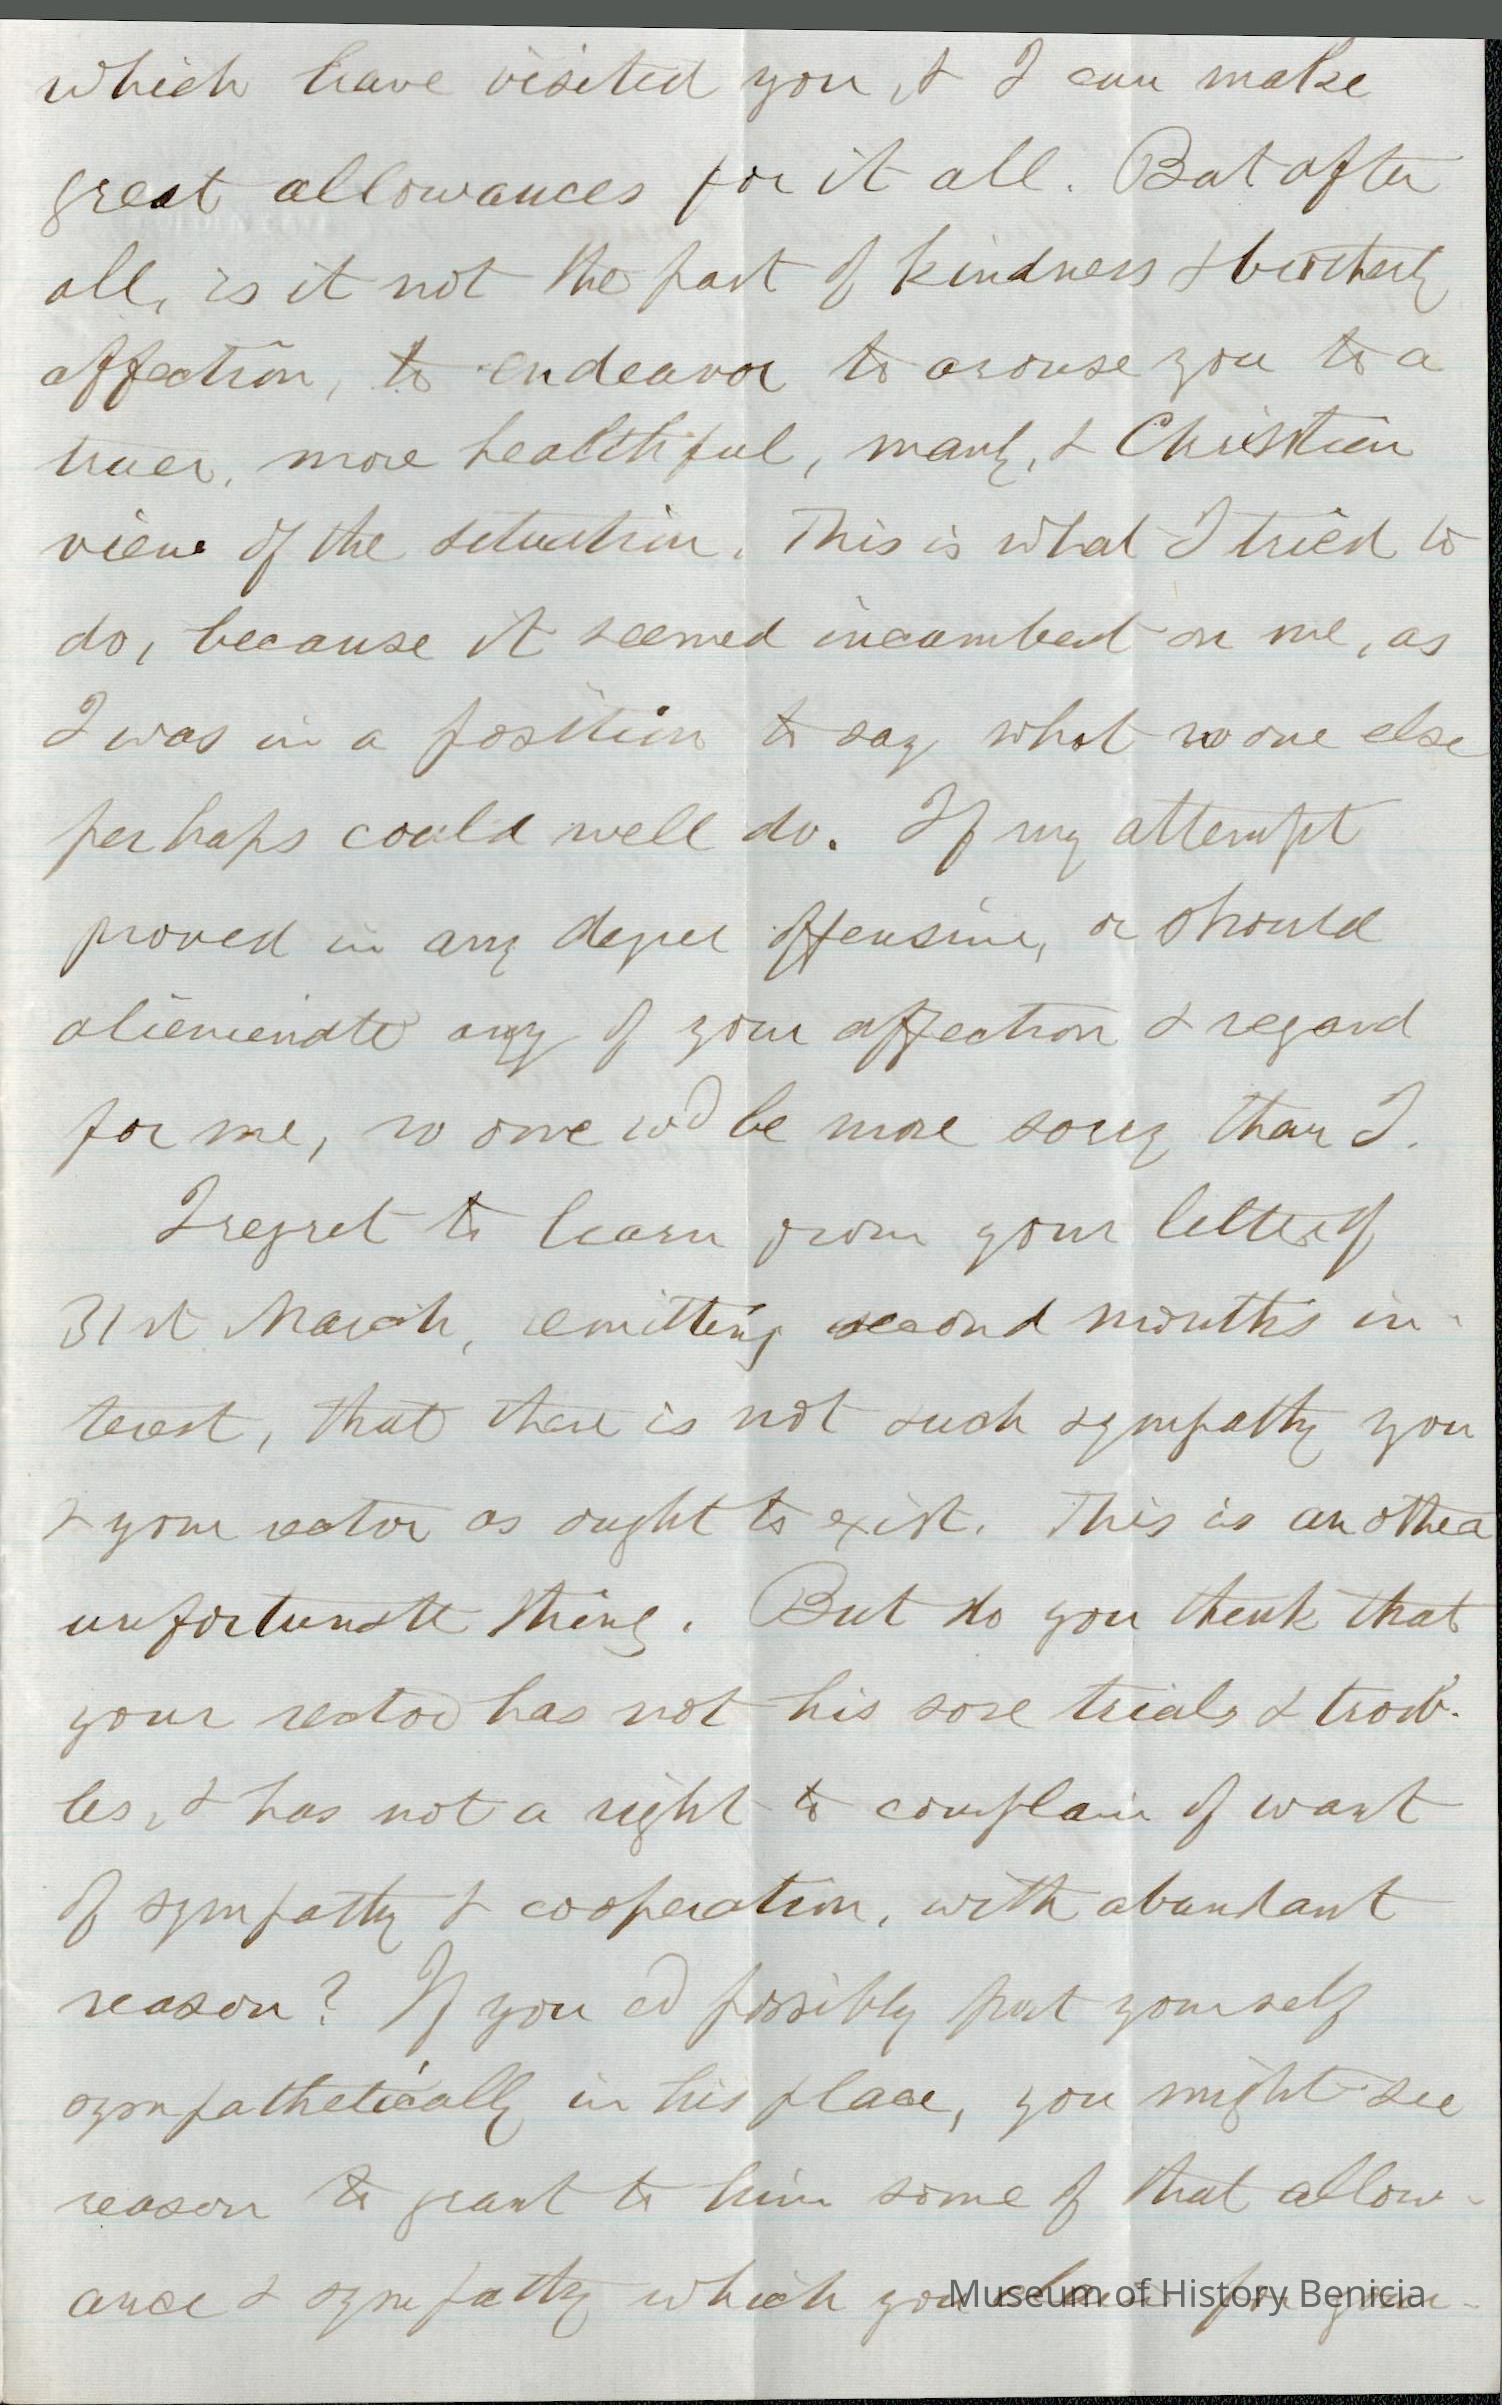 which have visited you, & I can make
great allowances for it all. But after
all, is it not the part of kindness & brotherly
affection, to endeavor to arouse you to a
truer, more healthful, manly, & Christian
view of the situation. This is what I tried to
do, because it seemed incumbent on me, as
I was in a position to say what no one else
perhaps could well do. If my attempt
proved in any degree offensive, or should
alieneniate any of your affection & regard
for me, no one wd be more sorry than I.
I regret to learn from your letter of
31st March, remitting second months in-
terest, that there is not such sympathy you
& your rector as ought to exist. This is another
unfortunate thing. But do you think that
your rector has not his sore trials & troub-
les, & has not a right to complain of want
of sympathy & cooperation, with abundant
reason? If you cd possibly put yourself
sympathetically in his place, you might see
reason to grant to him some of that allow-
ance & sympathy which you claim for your-
Museum of History Benicia